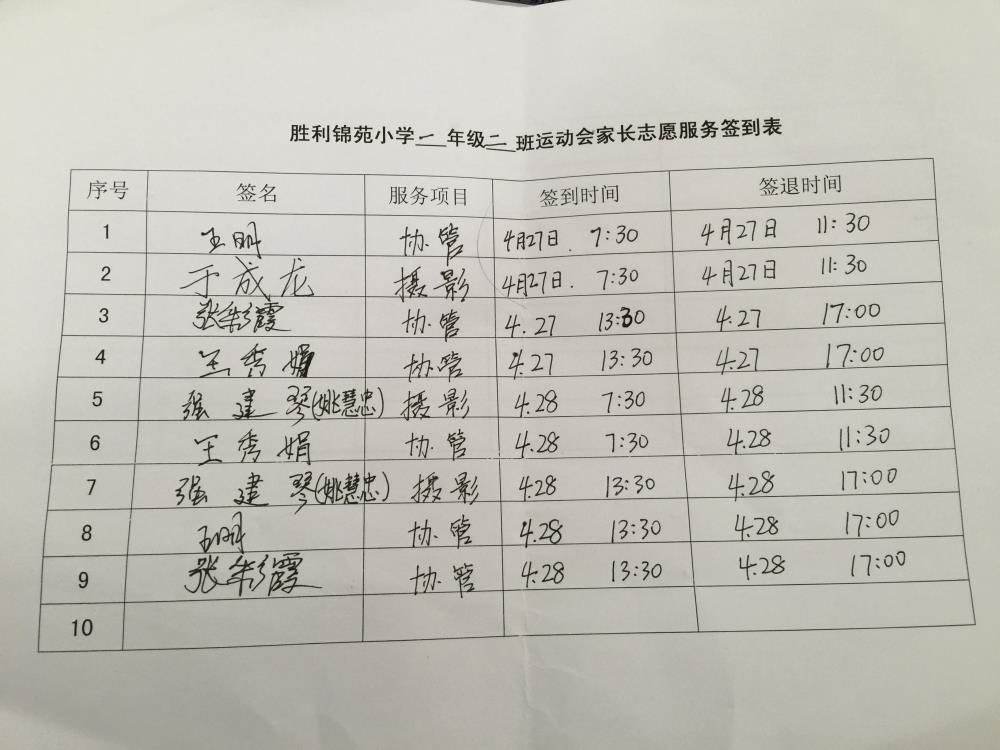 胜利锦苑小学一年级二班运动会家长志愿服务签到表
序号 签名 服务项目 签到时间 签退时间
1 王明 协管 4月27日. 7:30 4月27日 11:30
2 于成龙 摄影 4月27日. 7:30 4月27日 11:30
3 张彩霞 协管 4.27 13:30 4.27 17:00
4 王秀娟 协管 4.27 13:30 4.27 17:00
5 强建琴(姚慧忠) 摄影 4.28 7:30 4.28 11:30
6 王秀娟 协管 4.28 7:30 4.28 11:30
7 强建琴(姚慧忠) 摄影 4.28 13:30 4.28 17:00
8 王明 协管 4.28 13:30 4.28 17:00
9 张彩霞 协管 4.28 13:30 4.28 17:00
10